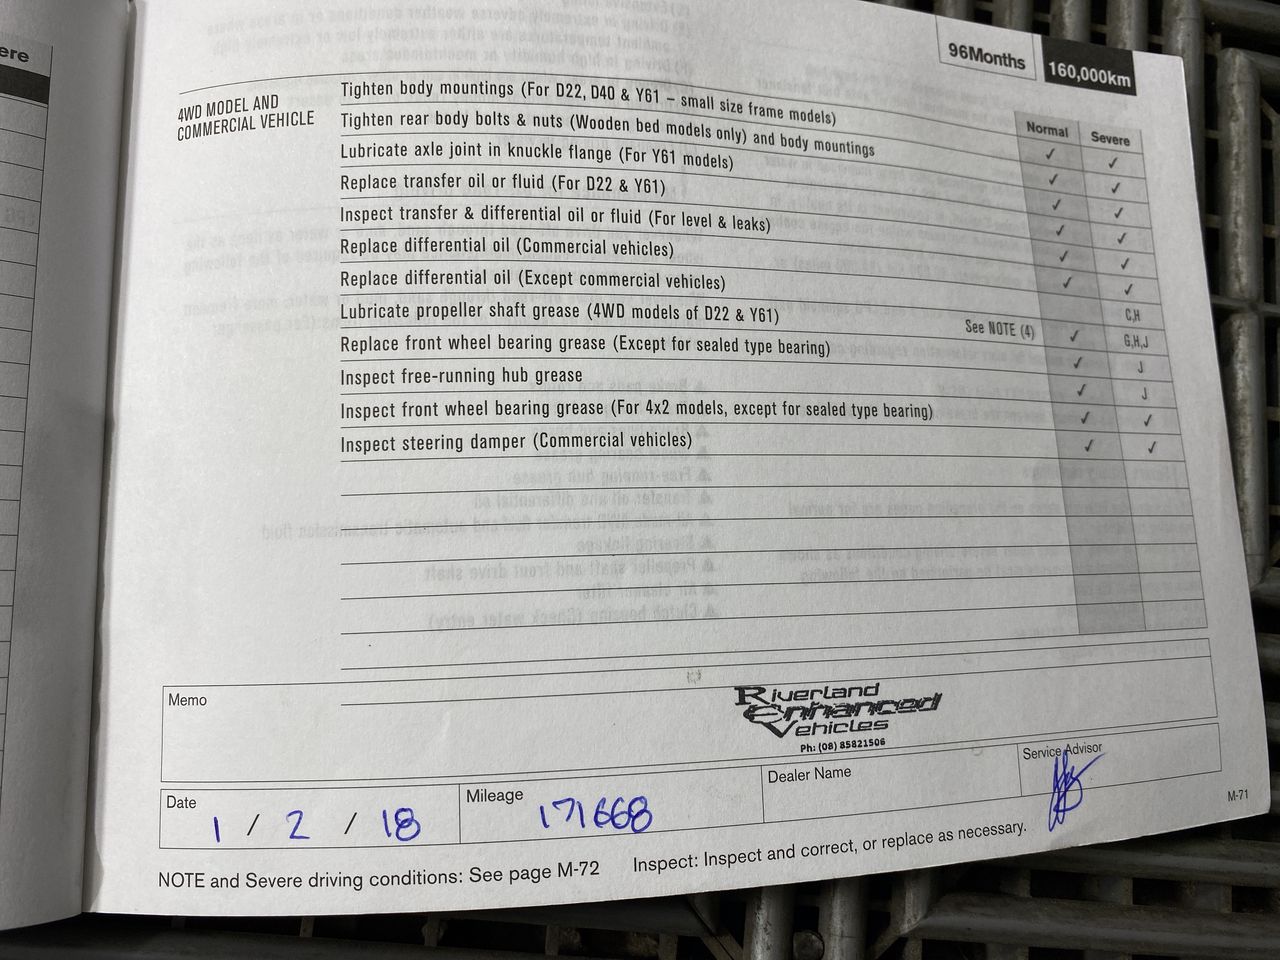 ere
96Months
160,000km
4WD MODEL AND
COMMERCIAL VEHICLE
Normal
Severe
Tighten body mountings (For D22, D40 & Y61 – small size frame models)
✓ ✓
Tighten rear body bolts & nuts (Wooden bed models only) and body mountings
✓ ✓
Lubricate axle joint in knuckle flange (For Y61 models)
✓ ✓
Replace transfer oil or fluid (For D22 & Y61)
✓ ✓
Inspect transfer & differential oil or fluid (For level & leaks)
✓ ✓
Replace differential oil (Commercial vehicles)
✓ ✓
Replace differential oil (Except commercial vehicles)
C,H
Lubricate propeller shaft grease (4WD models of D22 & Y61)
See NOTE (4) ✓ G,H,J
Replace front wheel bearing grease (Except for sealed type bearing)
✓ J
Inspect free-running hub grease
✓ J
Inspect front wheel bearing grease (For 4x2 models, except for sealed type bearing)
✓ ✓
Inspect steering damper (Commercial vehicles)
✓ ✓
Memo
Riverland
Enhanced
Vehicles
Ph: (08) 85821506
Date
1 / 2 / 18
Mileage
171668
Dealer Name
Service Advisor
M-71
NOTE and Severe driving conditions: See page M-72
Inspect: Inspect and correct, or replace as necessary.